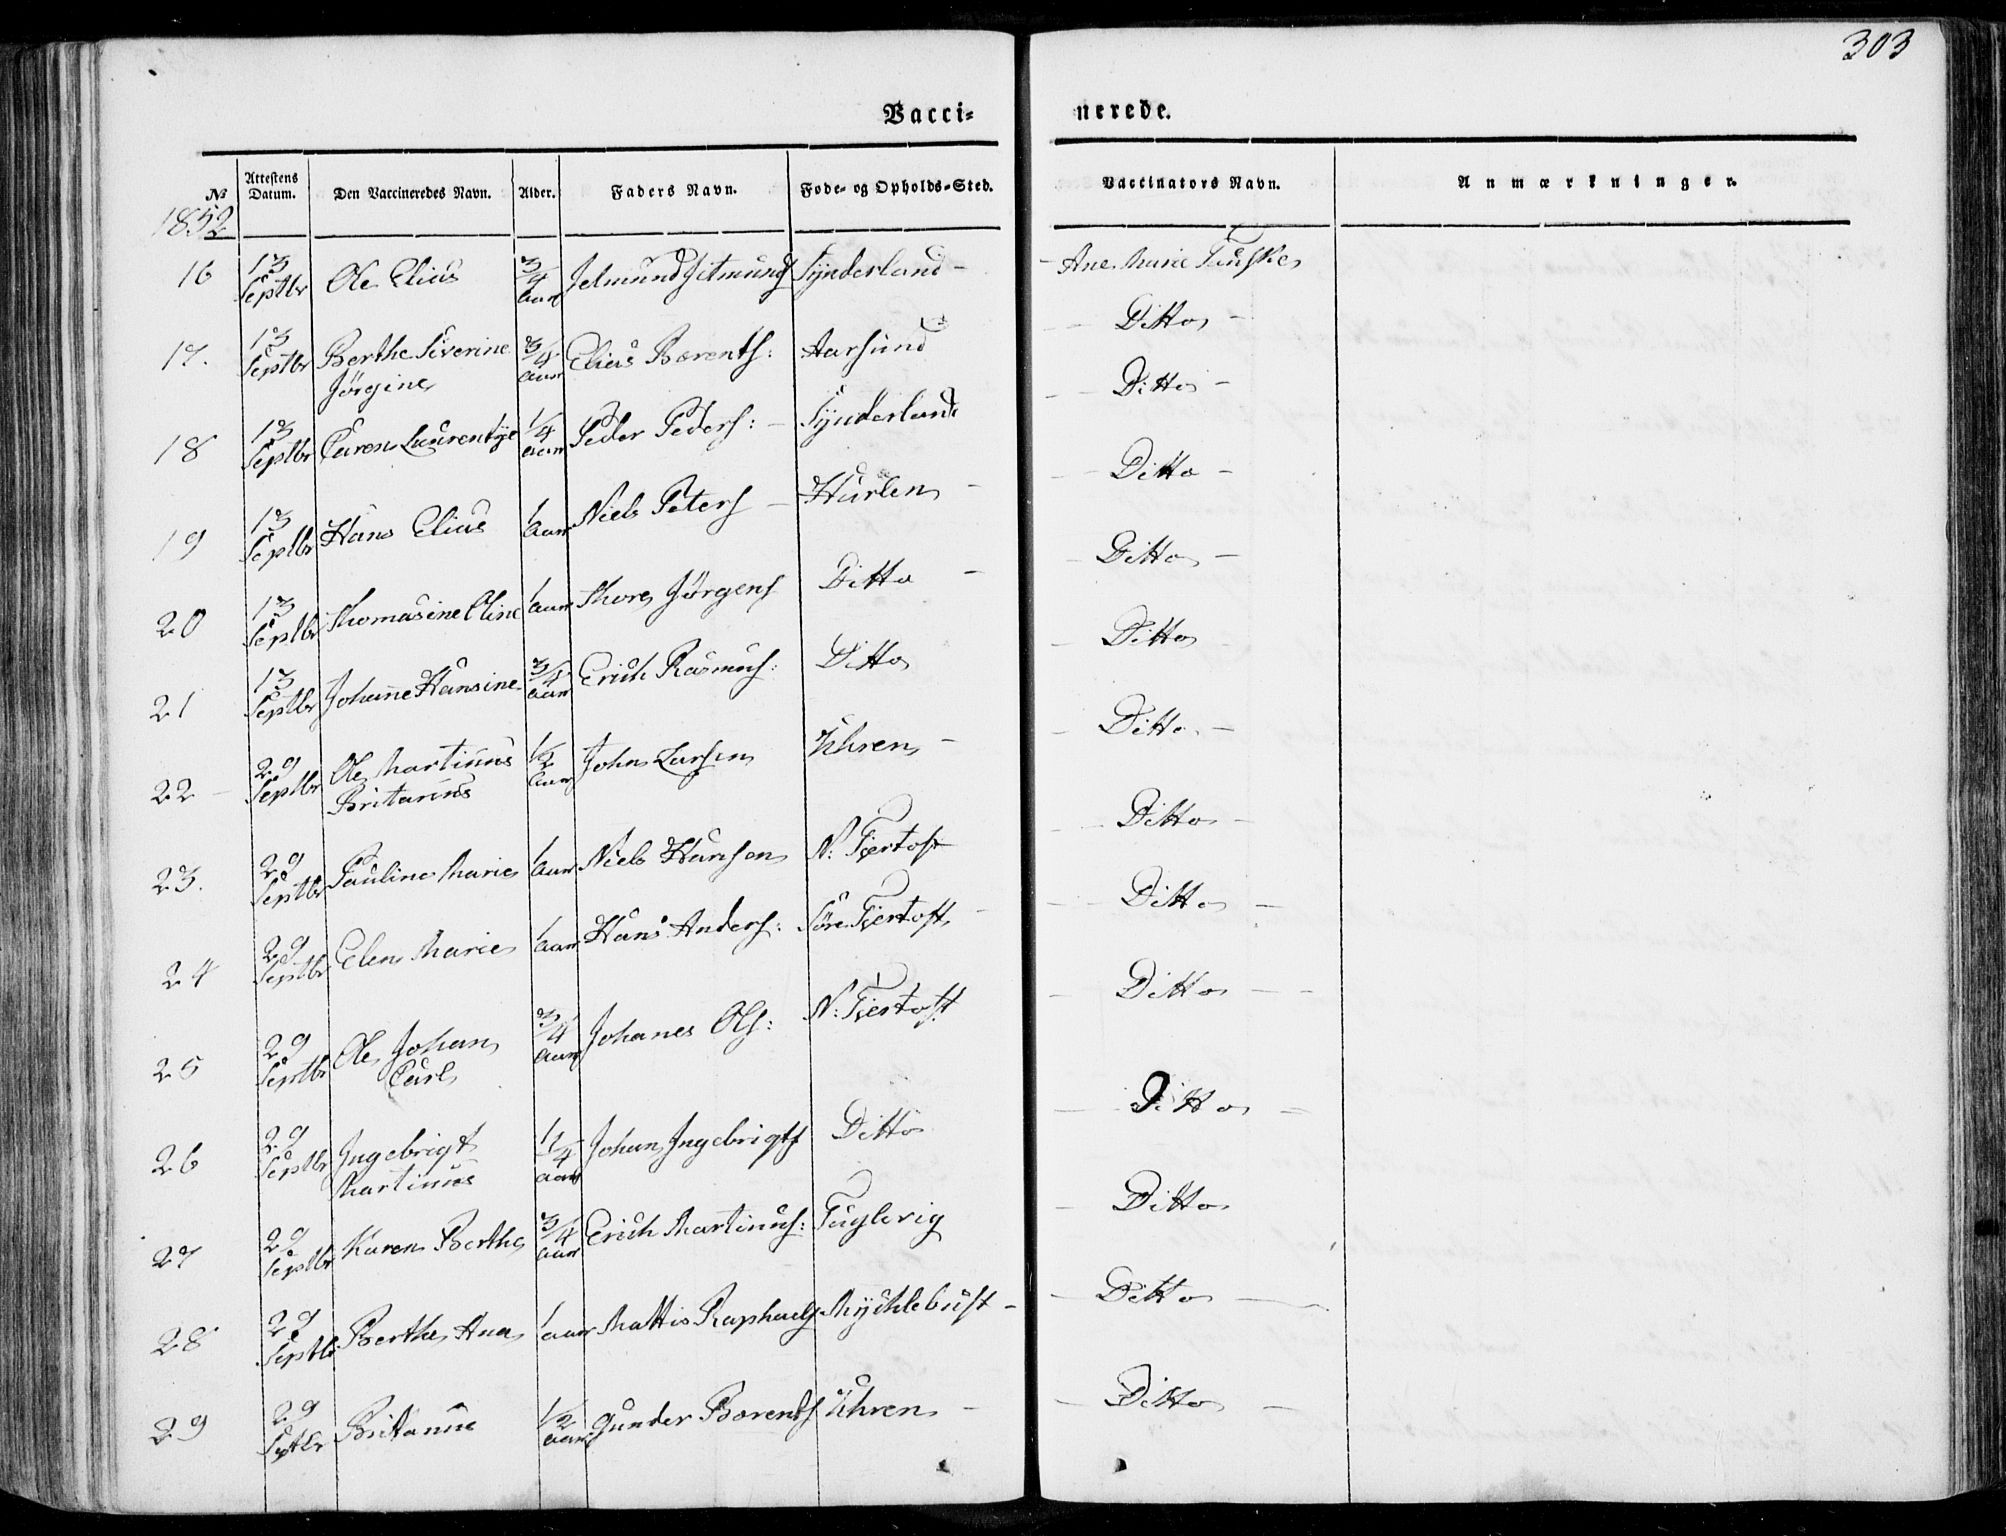 303
Vacci- nerede.
№ Attestens Datum. Den Vaccineredes Navn. Alder. Faders Navn. Føde- og Opholds-Sted. Vaccinators Navn. Anmærkninger.
1852
16 13 Septbr Ole Elias 3/4 aar Jetmund Jetmunds Synderland - Ane Marie Tunske
17. 13 Septbr Berthe Siverine Jörgine 3/4 aar Elias Bærents: Aarsund Ditto -
18 13 Septbr Caren Laurentze 1/4 aar Peder Peders: - Synderland Ditto -
19 13 Septbr Hans Elias 1 aar Niels Peters - Hurlen - Ditto -
20 13 Septbr Thomasine Oline 1 aar Thore Jörgens Ditto - Ditto -
21 13 Septbr Johanne Hansine 3/4 aar Erich Rasmus: Ditto Ditto
22 - 29 Septbr Ole Martinus Britanus 1/2 aar John Larsen Uhren - Ditto -
23. 29 Septbr Pauline Marie 1 aar Niels Hansen N: Fjertoft Ditto -
24 29 Septbr Elen Marie 1 aar Hans Anders: Söre Fjertoft - Ditto -
25 29 Septbr Ole Johan Carl 3/4 aar Johanes Ols: N: Fjertoft Ditto - -
26 29 Septbr Ingebrigt Martinus 1/4 aar Johan Ingebrigts Ditto Ditto -
27 29 Septbr Karen Berthe 3/4 aar Erich Martinus: Fuglevig Ditto
28 29 Septbr Berthe Ana 1 aar Mattis Raphaels Mychlebust - Ditto -
29 29 Septbr Britanus 1/2 aar Gunder Bærents Uhren - Ditto -